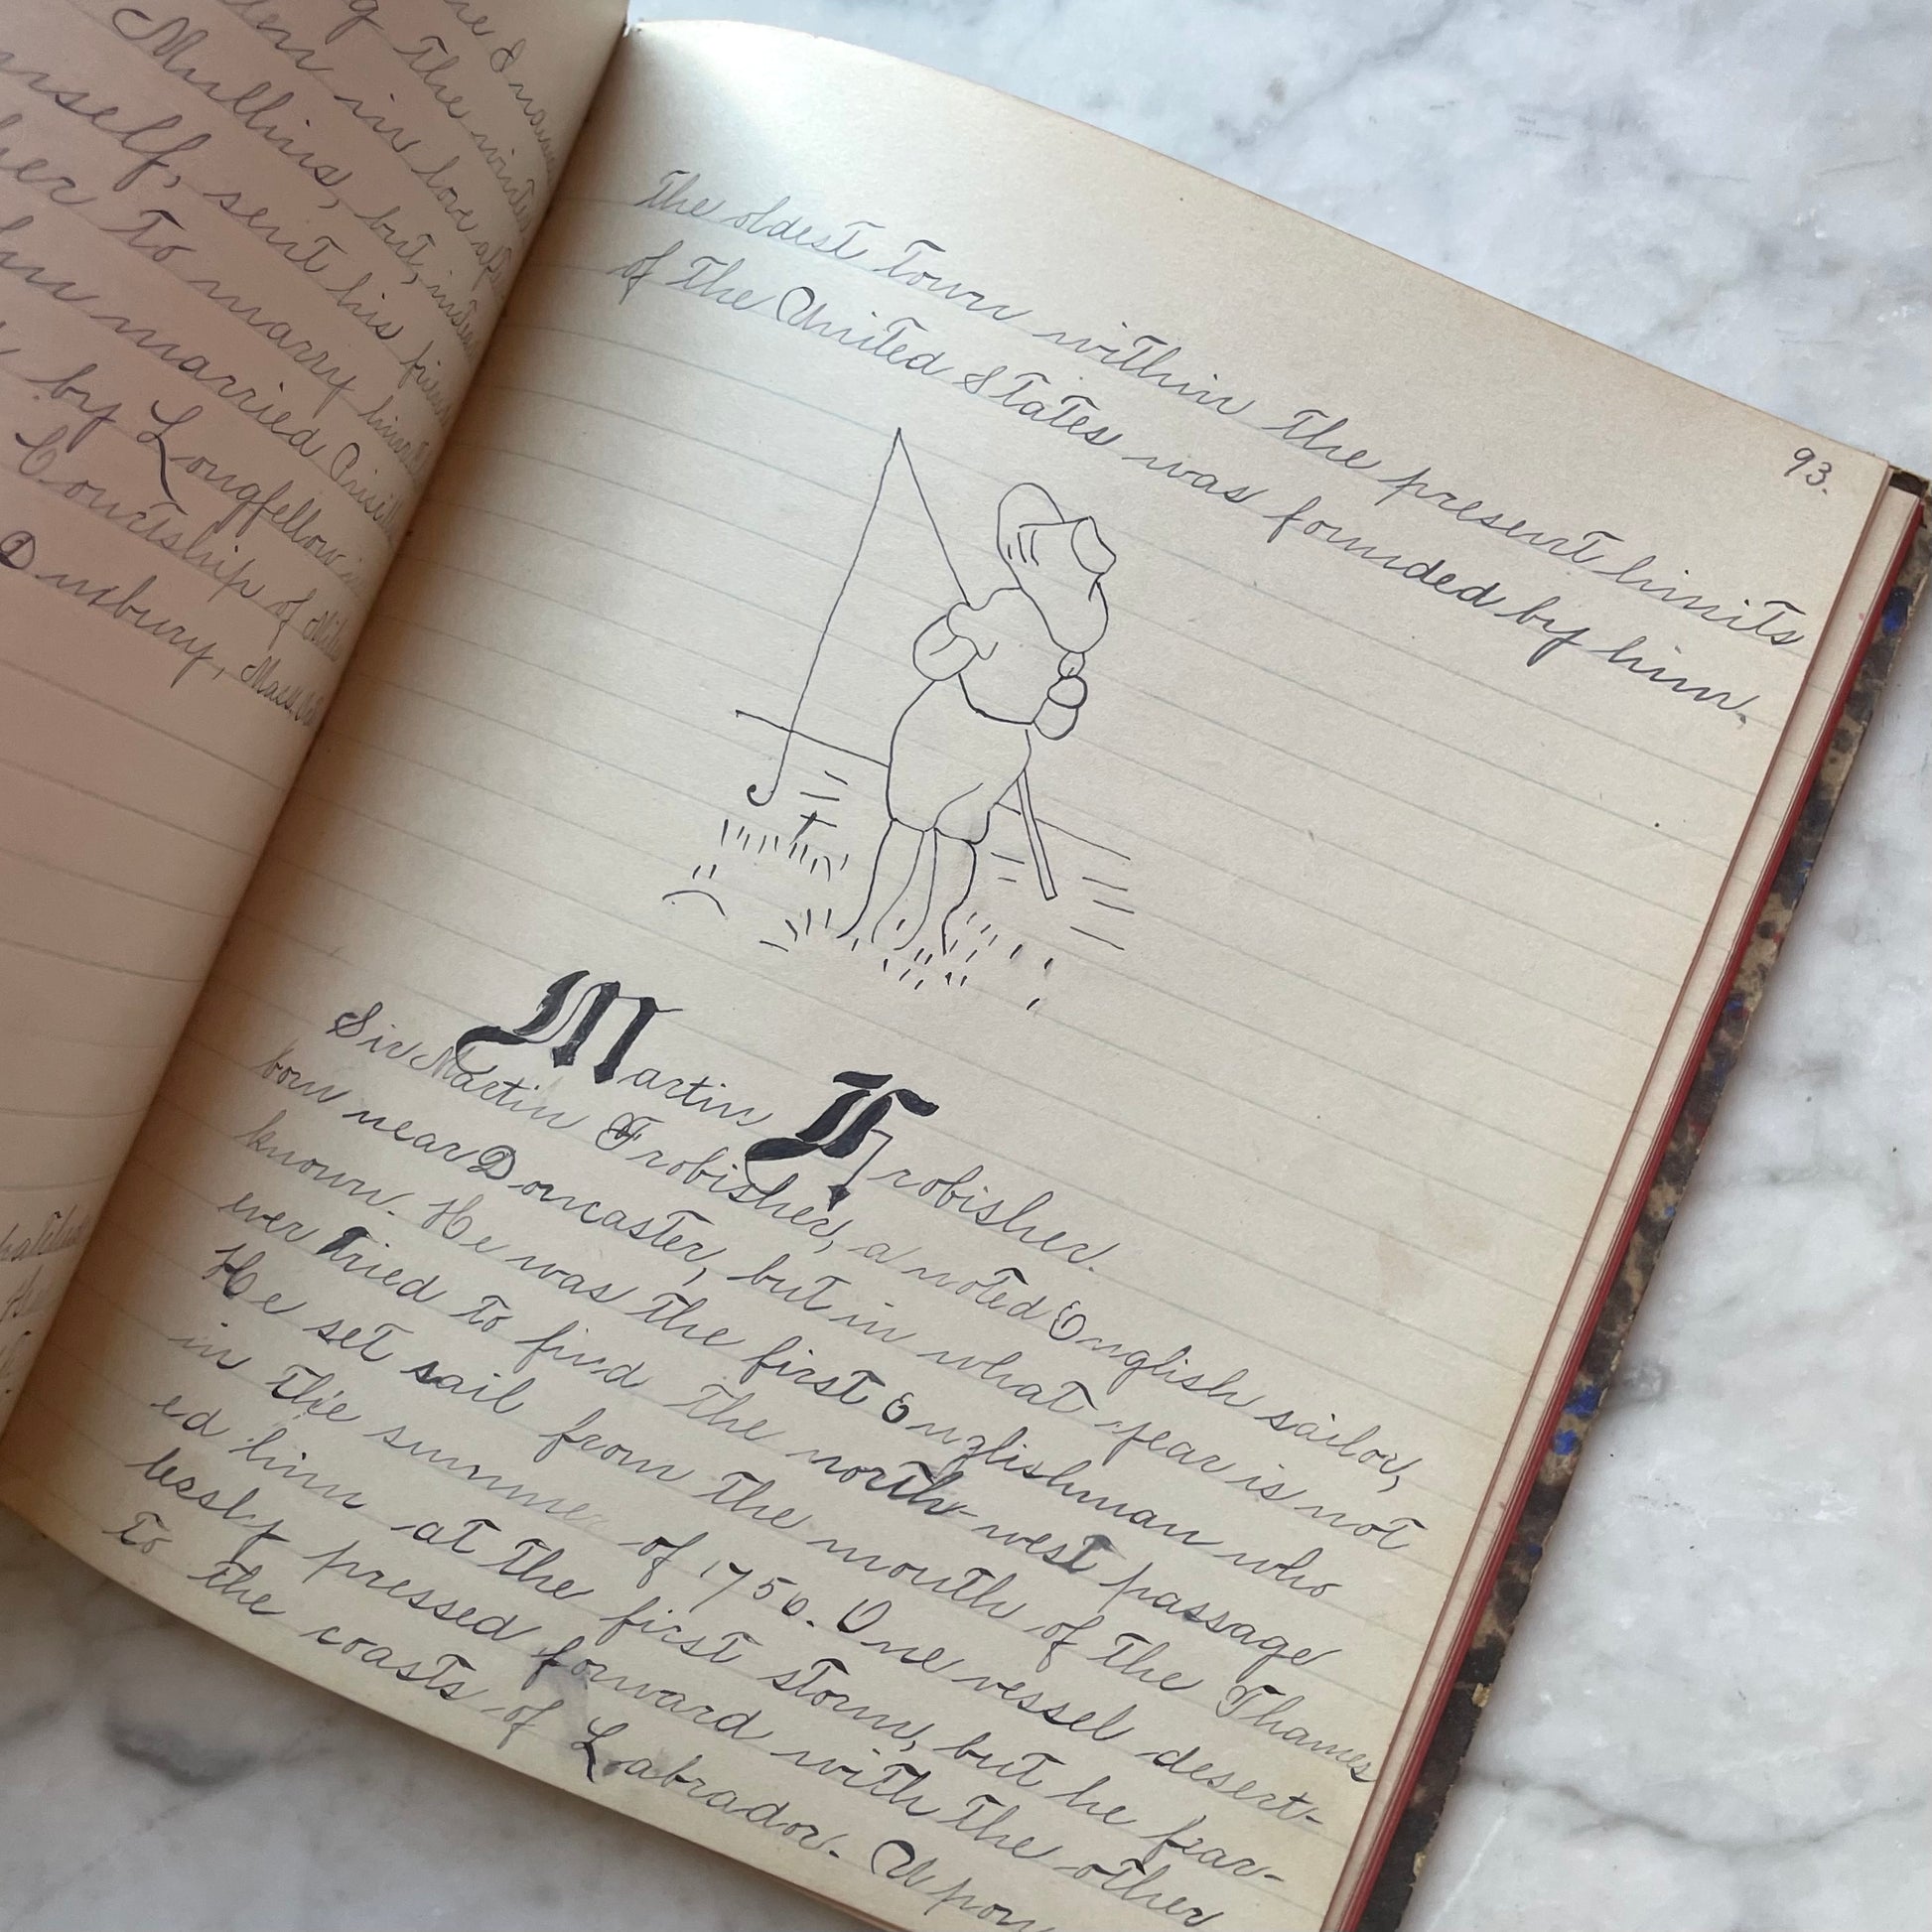 the I
g the winter
den in love
Mullins, but, instead
himself, sent his friend
her to marry
married
by Longfellow
Courtship of
Duxbury, Mass.
93.
the oldest town within the present limits
of the United States was founded by him.
Martin Frobisher.
Sir Martin Frobisher, a noted English sailor,
born near Doncaster, but in what year is not
known. He was the first Englishman who
ever tried to find the north-west passage
He set sail from the mouth of the Thames
in the summer of 1750. One vessel desert-
ed him at the first storm, but he fear-
lessly pressed forward with the other
to the coasts of Labrador. Upon